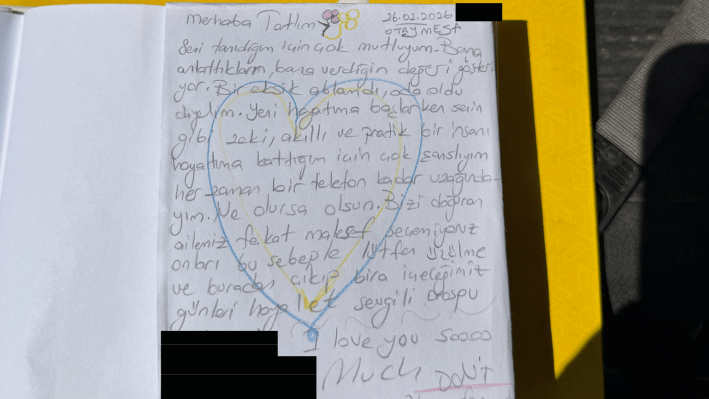 Merhaba Tatlım, 26.02.2026
OTAY MESA
Seni tanıdığım için çok mutluyum. Bana
anlattıkların, bana verdiğin değeri gösteri
yor. Bir eksik aklandı, o da oldu
diyelim. Yeni hayatıma başlarken senin
gibi zeki, akıllı ve pratik bir insanı
hayatıma kattığım için çok şanslıyım
her zaman bir telefon kadar uzağında-
yım. Ne olursa olsun. Bizi doğuran
ailemiz fakat malesef seçemiyoruz
onları bu sebeple lütfen üzülme
ve buradan çıkıp bira içeceğimiz
günleri hayal et sevgili orospu
I love you Sooooo
Much DON'T